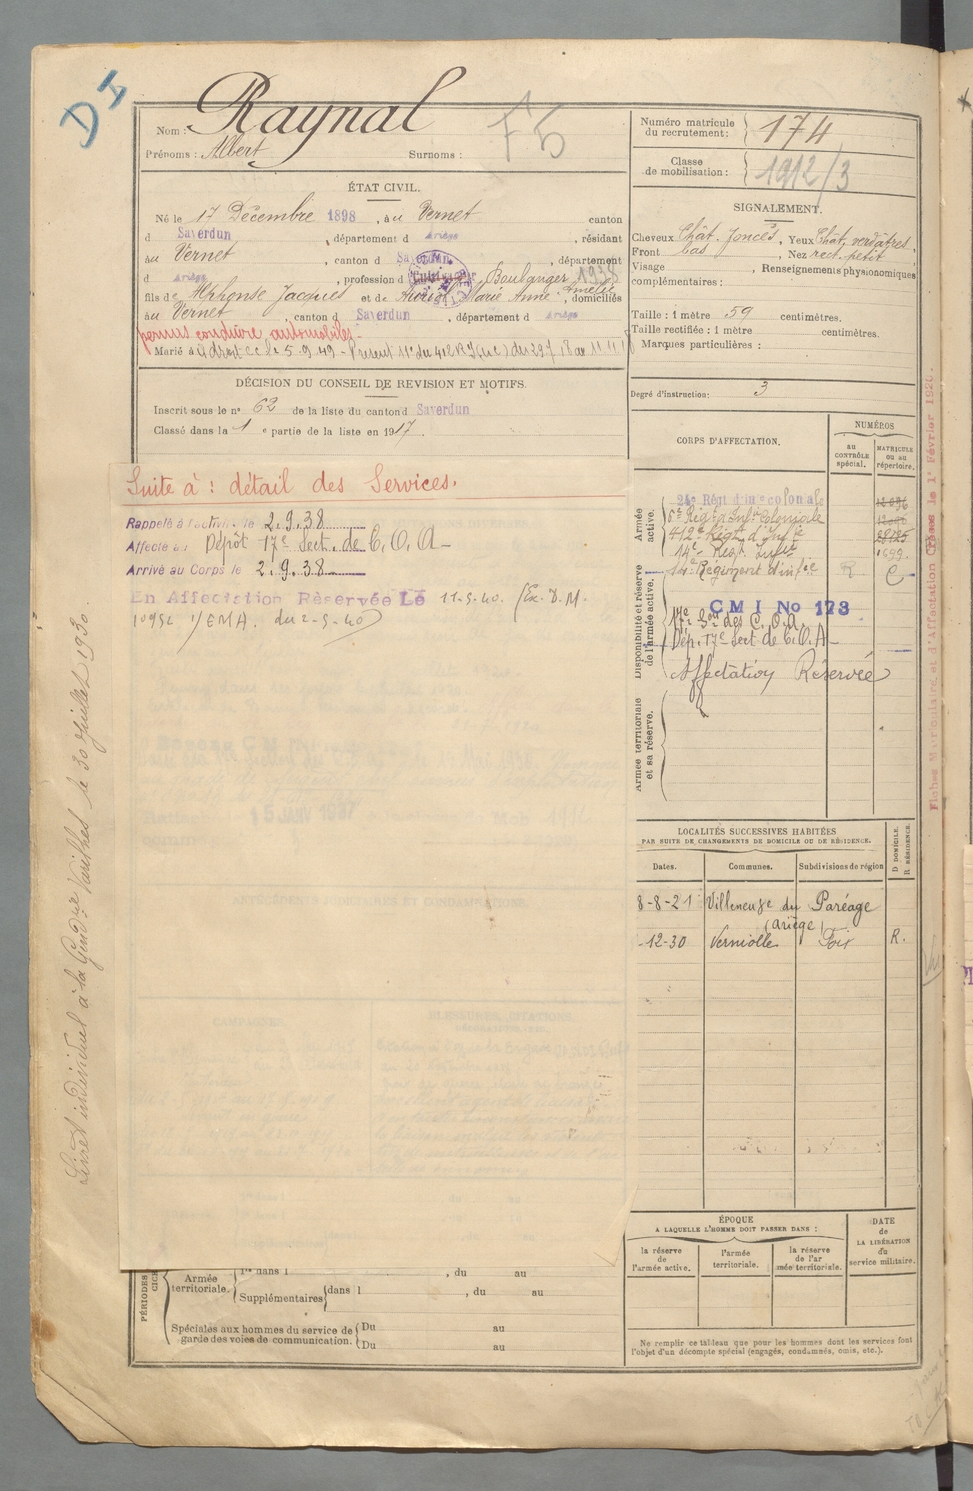 DI
Nom : Raynal
Prénoms : Albert Surnoms :
F5
ÉTAT CIVIL.
Né le 17 Décembre 1898, à au Vernet canton
d Saverdun, département d Ariège, résidant
au Vernet, canton d Sa, département
d Ariège, profession d Cultivateur, Boulanger 1938
fils de Alphonse Jacques et de Auriol Marie Anne Amélie, domiciliés
au Vernet, canton d Saverdun, département d Ariège
permis conduire automobiles
Marié à A droit CC le 5.9.49 - Présent 11e du 412 RI (u c) du 29.7.18 au 11.11.18
DÉCISION DU CONSEIL DE REVISION ET MOTIFS.
Inscrit sous le no 62 de la liste du canton d Saverdun
Classé dans la 1 e partie de la liste en 1917.
Suite à : détail des Services.
Rappelé à l'activ. le 2.9.38
Affecté au Dépôt 17e Sect. de C.O.A-
Arrivé au Corps le 2.9.38
En Affectation Réservée Le 11-5-40. (Ex. D.M.
10952 1/EMA. du 2-5-40)
Livret individuel à la Gendrie Varilhes le 30 juillet 1930.
PÉRIODES
Armée territoriale.
1re dans l , du au
Supplémentaires dans l , du au
Spéciales aux hommes du service de garde des voies de communication.
Du au
Du au
Numéro matricule du recrutement : 174
Classe de mobilisation : 1912/3
SIGNALEMENT.
Cheveux Chât. foncés, Yeux Chât. verdâtres
Front bas, Nez rect. petit
Visage , Renseignements physionomiques
complémentaires :
Taille : 1 mètre 59 centimètres.
Taille rectifiée : 1 mètre centimètres.
Marques particulières :
Degré d'instruction : 3
CORPS D'AFFECTATION.
NUMÉROS
au CONTRÔLE spécial.
MATRICULE ou au répertoire.
Armée active.
24e Régt d'inf coloniale
8e Régt d'Infrie Coloniale
412e Régt d'Infie
14e Régt Infie 1692
Disponibilité et réserve de l'armée active.
14e Régiment d'infie R C
C M I No 173
17e Son des C.O.A.
Dép. 17e Sect de C.O.A-
Affectation Réservée
Armée territoriale et sa réserve.
LOCALITÉS SUCCESSIVES HABITÉES
PAR SUITE DE CHANGEMENTS DE DOMICILE OU DE RÉSIDENCE.
Dates. Communes. Subdivisions de région
D DOMICILE.
R RÉSIDENCE.
8-8-21 Villeneuve du Paréage
(Ariège)
-12-30 Verniolle Foix R.
ÉPOQUE
A LAQUELLE L'HOMME DOIT PASSER DANS :
la réserve de l'armée active.
l'armée territoriale.
la réserve de l'armée territoriale.
DATE de LA LIBÉRATION du service militaire.
Ne remplir ce tableau que pour les hommes dont les services font
l'objet d'un décompte spécial (engagés, condamnés, omis, etc.).
Fiches Matriculaire et d'Affectation Créées le 1er Février 1920.